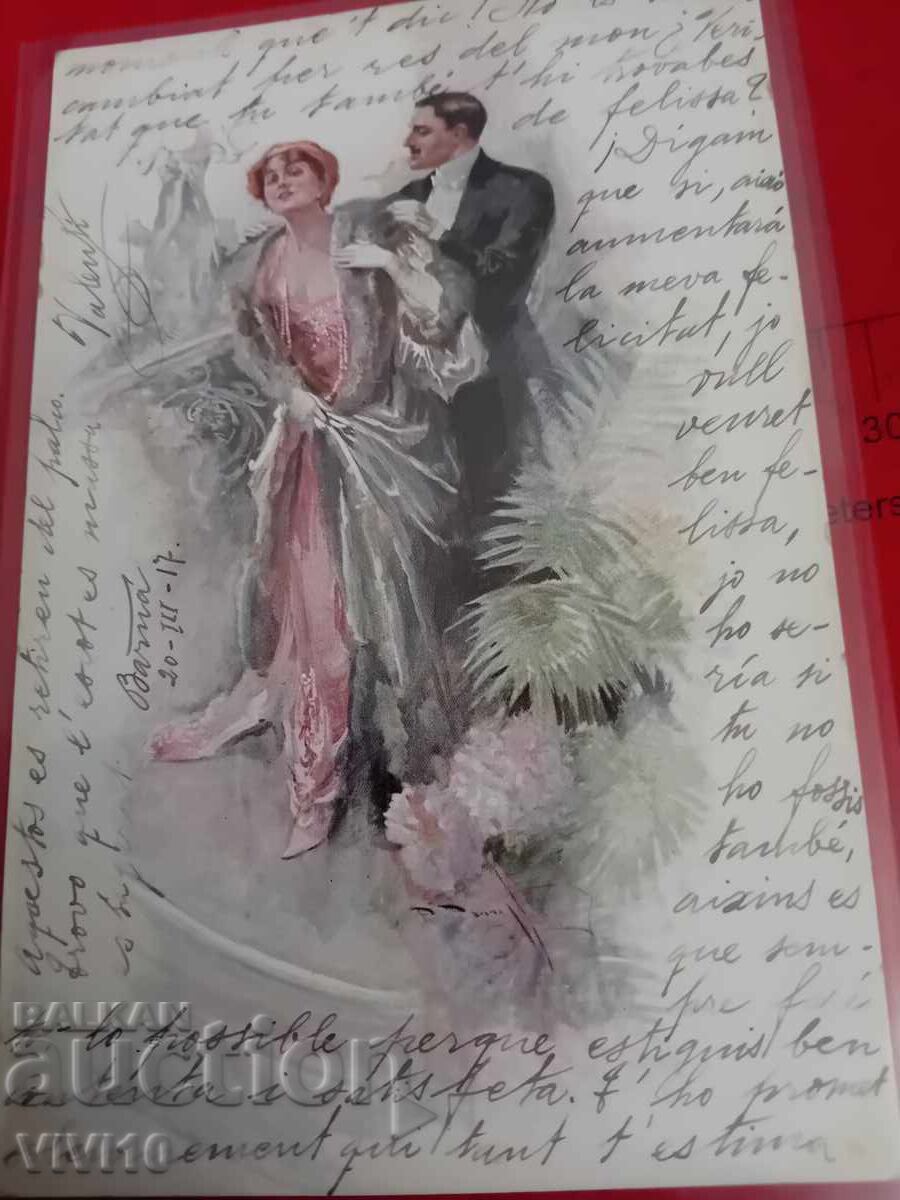 que 't dic! No
moment
cambiat per res del mon; Veri-
tat que tu també t'hi trovabes
de felissa?
¡Digam
que si, aixó
aumentará
la meva fe-
licitat, jo
vull
veuret
ben fe-
lissa,
jo no
ho se-
ría si
tu no
ho fossis
també,
aixins es
que sem-
pre faré
t-lo possible perque estiguis ben
i satisfeta. T'ho promet
qui tant t'estima
Aquestos es retiren del palco.
trovo que t'
Barna
20-III-17.
30
eters
BALKAN
auction
VIVI10